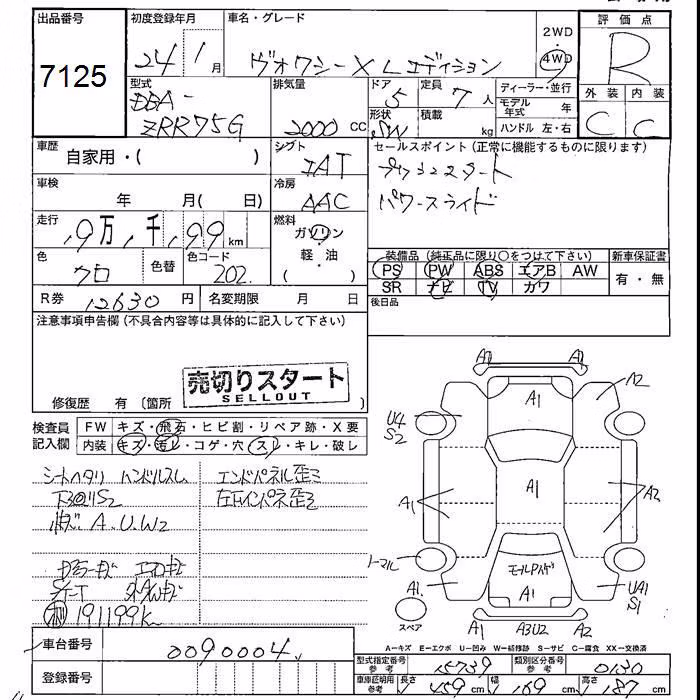 出品番号
7125
初度登録年月
24年1月
車名・グレード
ヴォクシー X Lエディション
2WD
4WD
評価点
R
外装
内装
C
C
型式
DBA-
ZRR75G
排気量
2000 cc
ドア
5
定員
7人
形状
SW
積載
kg
ディーラー・並行
モデル年式 年
ハンドル 左・右
車歴
自家用・( )
シフト
IAT
セールスポイント(正常に機能するものに限ります)
プッシュスタート
パワースライド
車検
年 月( 日)
冷房
AAC
走行
19万1千199km
燃料
ガソリン
軽・油
( )
色
クロ
色替
色コード
202
装備品(純正品に限り○をつけて下さい)
PS PW ABS エアB AW
SR ナビ TV カワ
新車保証書
有・無
R券 12630円
名変期限 月 日
後日品
注意事項申告欄(不具合内容等は具体的に記入して下さい)
売切りスタート
SELLOUT
修復歴 有(箇所 )
検査員記入欄
FW キズ・飛石・ヒビ割・リペア跡・X要
内装 キズ・汚レ・コゲ・穴・スレ・キレ・破レ
シートヘタリ ハンドルスレ
エンドパネル歪ミ
A.U.W2
191199k
A1 A1
A1
A2
U4
S2
A1
A1
A2
ノーマル
A1
A1
UA1
S1
スペア
A1 A3U2 A2
A-キズ E-エクボ U-凹み W-補修跡 S-サビ C-腐食 XX-交換済
車台番号
0090004
登録番号
型式指定番号 参考
15739
類別区分番号 参考
0130
車庫証明用 参考
長さ 459cm
幅 169cm
高さ 187cm